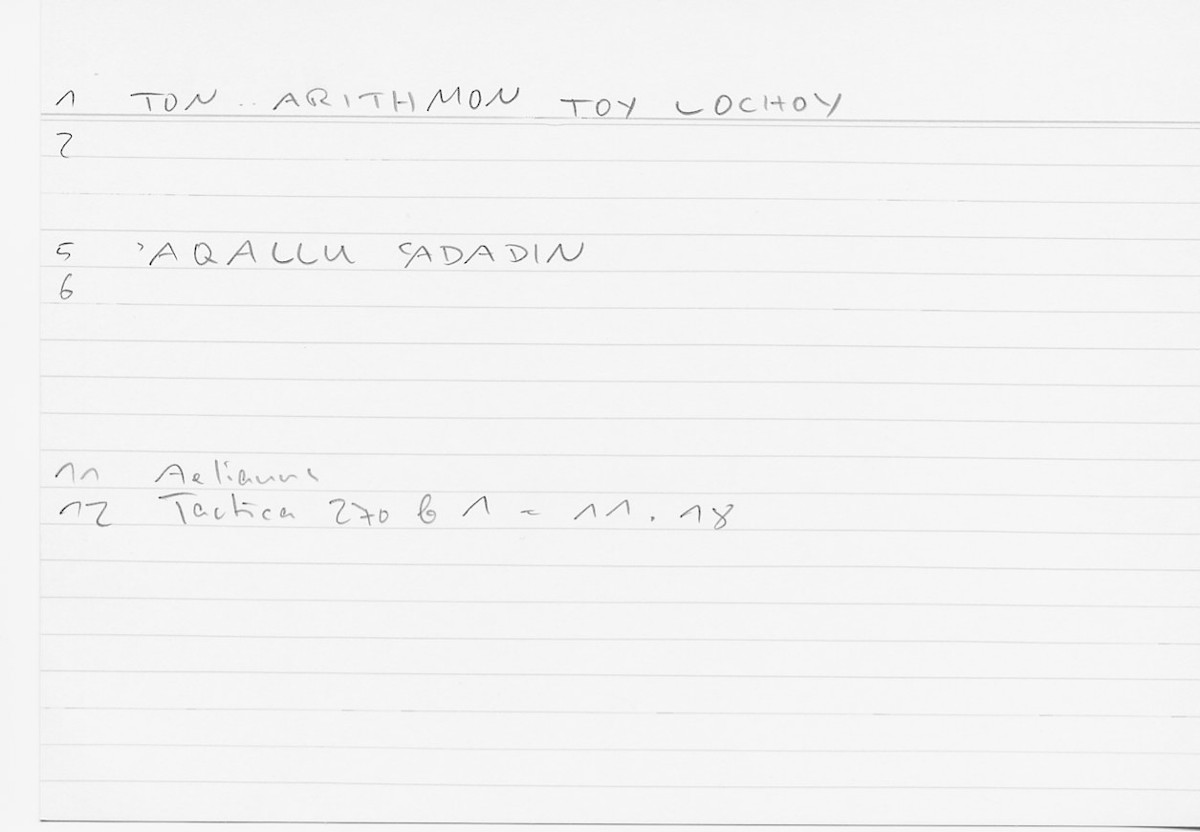 1 TON .. ARITHMON TOY LOCHOY
2
5 ʾAQALLU ʿADADIN
6
11 Aelianus
12 Tactica 270 b 1 = 11.18